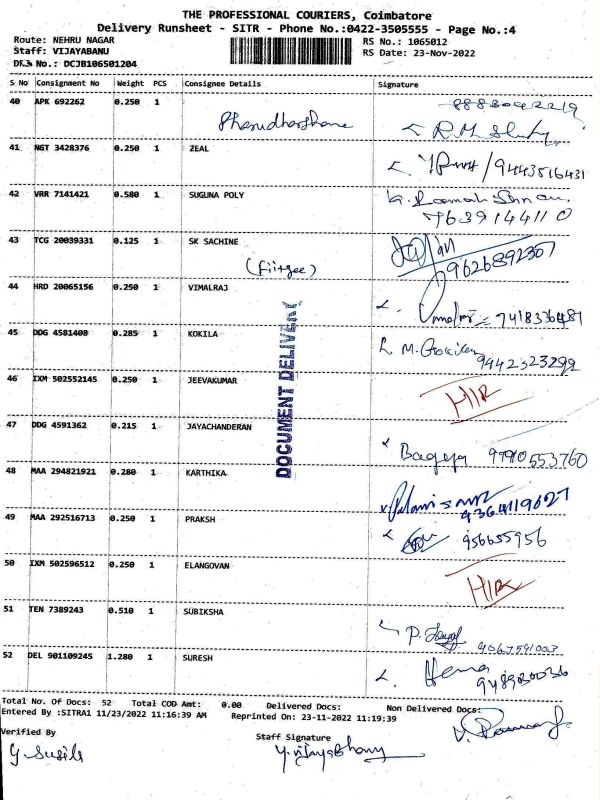 THE PROFESSIONAL COURIERS, Coimbatore
Delivery Runsheet - SITR - Phone No.:0422-3505555 - Page No.:4
Route: NEHRU NAGAR
RS No.: 1065012
Staff: VIJAYABANU
RS Date: 23-Nov-2022
DRS No.: DCJB106501204
S No Consignment No Weight PCS Consignee Details Signature
40 APK 692262 0.250 1
41 NGT 3428376 0.250 1 ZEAL
9443516431
42 VRR 7141421 0.580 1 SUGUNA POLY
7639144110
43 TCG 20039331 0.125 1 SK SACHINE
(Fiitjee) 9626892307
44 HRD 20065156 0.250 1 VIMALRAJ
7418336481
45 DDG 4581408 0.285 1 KOKILA
9442323292
46 IXM 502552145 0.250 1 JEEVAKUMAR
HIR
47 DDG 4591362 0.215 1 JAYACHANDERAN
48 MAA 294821921 0.280 1 KARTHIKA
9364119627
49 MAA 292516713 0.250 1 PRAKSH
956655956
50 IXM 502596512 0.250 1 ELANGOVAN
HIR
51 TEN 7389243 0.510 1 SUBIKSHA
9067591003
52 DEL 901109245 1.280 1 SURESH
Hema
DOCUMENT DELIVERY
Total No. Of Docs: 52 Total COD Amt: 0.00 Delivered Docs: Non Delivered Docs:
Entered By :SITRA1 11/23/2022 11:16:39 AM Reprinted On: 23-11-2022 11:19:39
Verified By
Staff Signature